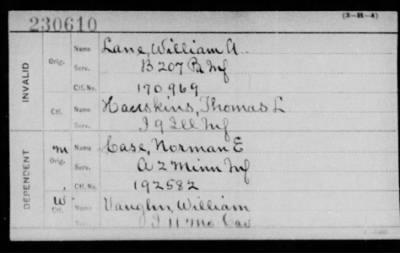 230610
(3-H-4)
INVALID
Orig. Name Lane, William A.
Serv. B 207 Pa Inf
Ctf. No. 170969
Ctf. Name Hauskins, Thomas L
Serv. I 9 Ill Inf
DEPENDENT
M Orig. Name Case, Norman E
Serv. A 2 Minn Inf
Ctf. No. 192582
W Ctf. Name Vaughn, William
I 11 Mo Cav